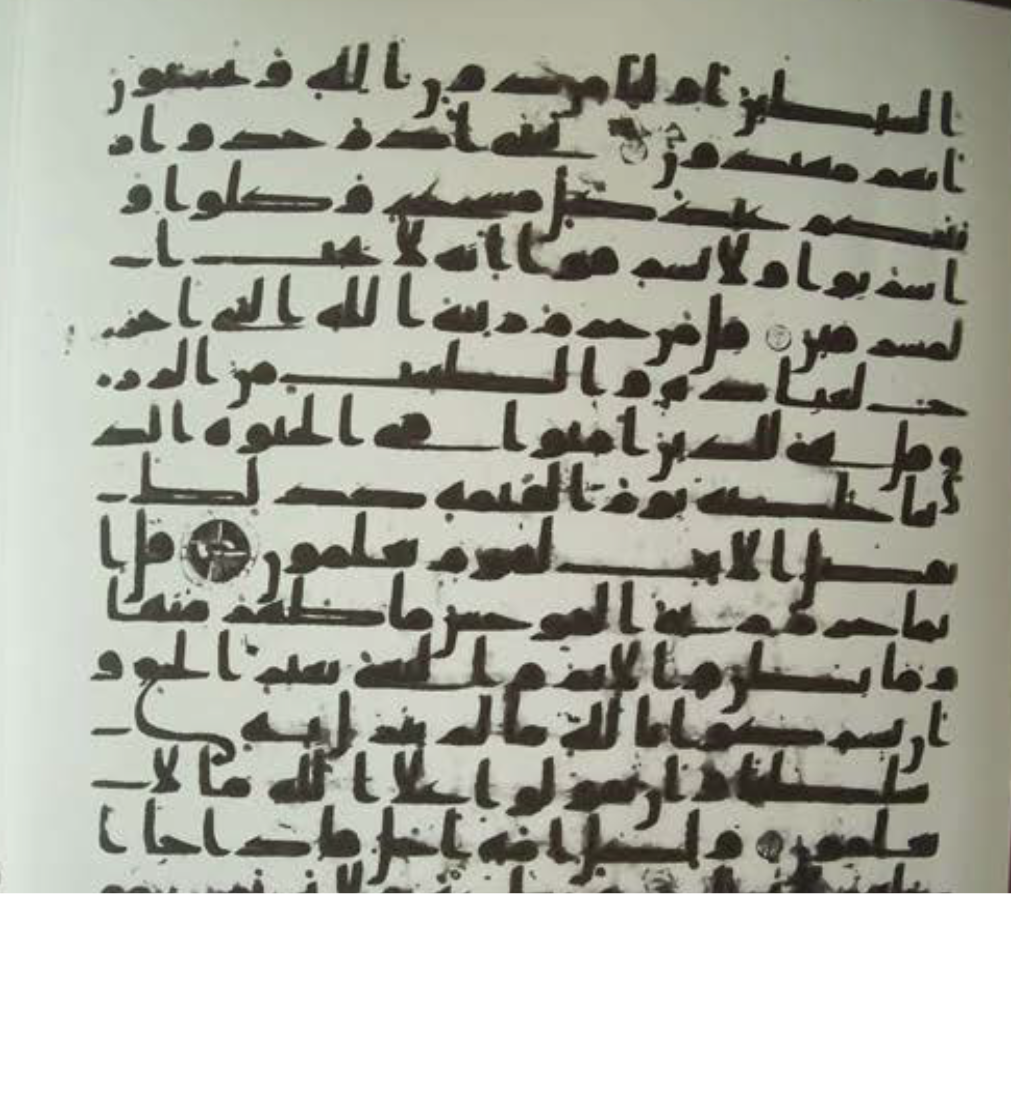 الشيطين اوليا من دون الله ويحسبون
انهم مهتدون يبني ادم خذوا ز
ينتكم عند كل مسجد وكلوا و
اشربوا ولا تسرفوا انه لا يحب ا
لمسرفين قل من حرم زينة الله التي اخر
ج لعباده والطيبت من الرز
ق قل هي للذين امنوا في الحيوة الد
نيا خالصة يوم القيمة كذلك نـ
فصل الايت لقوم يعلمون قل ا
نما حرم ربي الفوحش ما ظهر منها
وما بطن والاثم والبغي بغير الحق و
ان تشركوا بالله ما لم ينزل به
سلطنا وان تقولوا على الله ما لا
تعلمون ولكل امة اجل فاذا جا ا